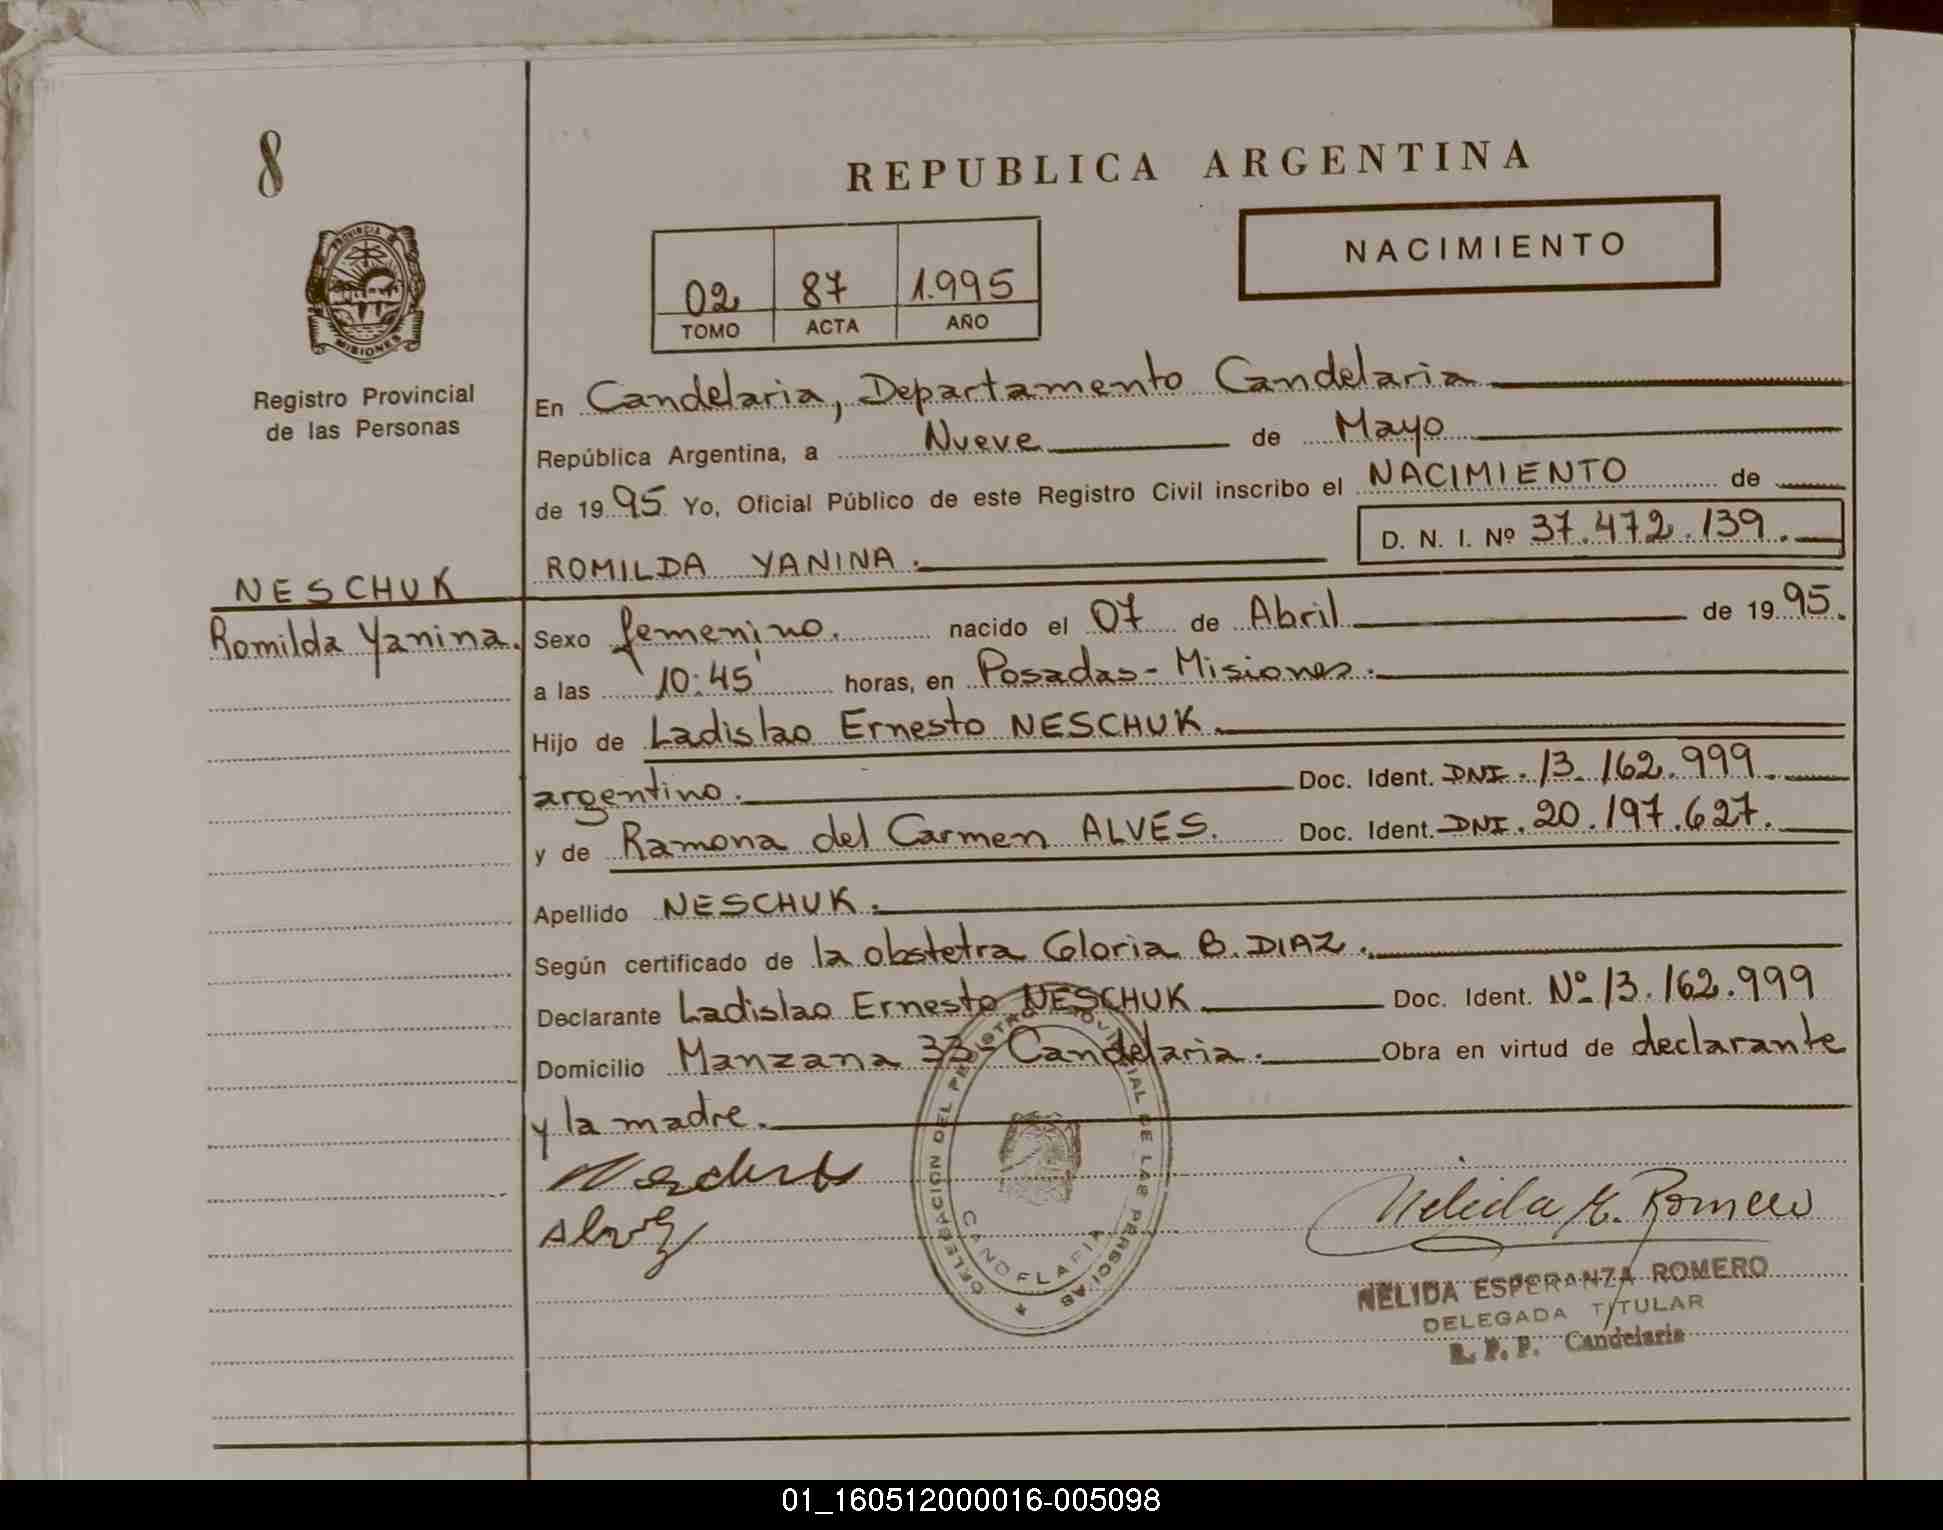 8
REPUBLICA ARGENTINA
NACIMIENTO
02 87 1.995
TOMO ACTA AÑO
PROVINCIA DE
MISIONES
Registro Provincial
de las Personas
En Candelaria, Departamento Candelaria
República Argentina, a Nueve de Mayo
de 1995 Yo, Oficial Público de este Registro Civil inscribo el NACIMIENTO de
D. N. I. Nº 37.472.139.
ROMILDA YANINA.
NESCHUK
Romilda Yanina.
Sexo femenino. nacido el 07 de Abril de 1995.
a las 10:45' horas, en Posadas - Misiones.
Hijo de Ladislao Ernesto NESCHUK.
argentino. Doc. Ident. DNI. 13.162.999.
y de Ramona del Carmen ALVES. Doc. Ident. DNI. 20.197.627.
Apellido NESCHUK.
Según certificado de la obstetra Gloria B. DIAZ.
Declarante Ladislao Ernesto NESCHUK Doc. Ident. Nº 13.162.999
Domicilio Manzana 33 - Candelaria. Obra en virtud de declarante
y la madre.
DELEGACION DEL REGISTRO PROVINCIAL DE LAS PERSONAS
CANDELARIA
Alvez
Nelida E. Romero
NELIDA ESPERANZA ROMERO
DELEGADA TITULAR
R. P. P. Candelaria
01_160512000016-005098